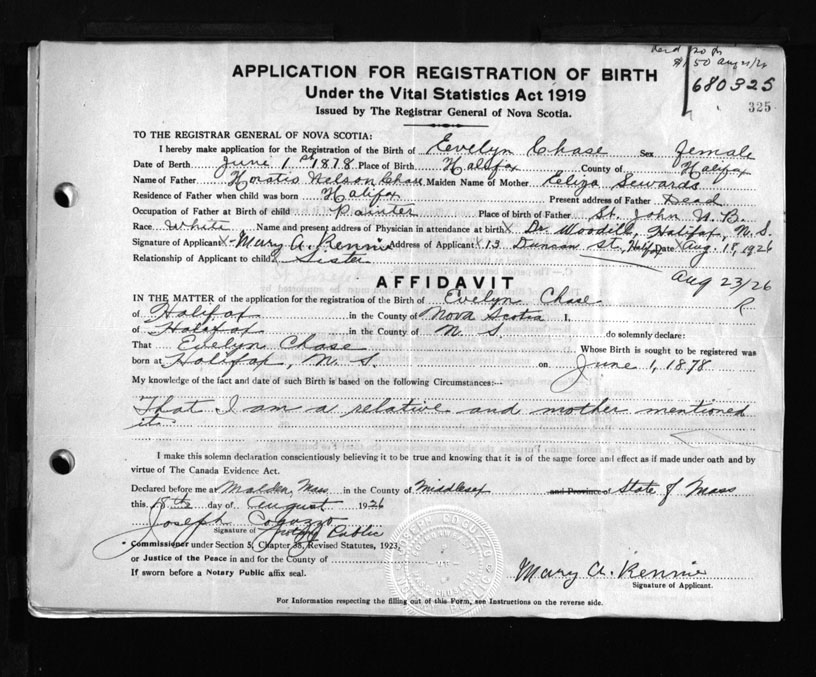 rec'd 20th
$1.50 Aug 21/26
680325
325
APPLICATION FOR REGISTRATION OF BIRTH
Under the Vital Statistics Act 1919
Issued by The Registrar General of Nova Scotia.
TO THE REGISTRAR GENERAL OF NOVA SCOTIA:
I hereby make application for the Registration of the Birth of Evelyn Chase Sex female
Date of Birth June 1st 1878 Place of Birth Halifax County of Halifax
Name of Father Horatio Nelson Chase Maiden Name of Mother Eliza Sewards
Residence of Father when child was born Halifax Present address of Father Dead
Occupation of Father at Birth of child Painter Place of birth of Father St. John N.B.
Race White Name and present address of Physician in attendance at birth X Dr Woodill, Halifax, N.S.
Signature of Applicant X Mary A. Rennie Address of Applicant X 13 Duncan St., Halifax Date X Aug. 18, 1926
Relationship of Applicant to child Sister
Aug 23/26
AFFIDAVIT
R
IN THE MATTER of the application for the registration of the Birth of Evelyn Chase
of Halifax in the County of Nova Scotia I,
of Halifax in the County of N. S. do solemnly declare:
That Evelyn Chase Whose Birth is sought to be registered was
born at Halifax, N. S. on June 1, 1878
My knowledge of the fact and date of such Birth is based on the following Circumstances:—
That I am a relative and mother mentioned
it.
I make this solemn declaration conscientiously believing it to be true and knowing that it is of the same force and effect as if made under oath and by
virtue of The Canada Evidence Act.
Declared before me at Malden, Mass in the County of Middlesex and Province of State of Mass
this 18th day of August 1926
Joseph Coguzzo
Signature of Notary Public
Commissioner under Section 5, Chapter 38, Revised Statutes, 1923,
or Justice of the Peace in and for the County of
If sworn before a Notary Public affix seal.
Mary A. Rennie
Signature of Applicant.
For Information respecting the filling out of this Form, see Instructions on the reverse side.